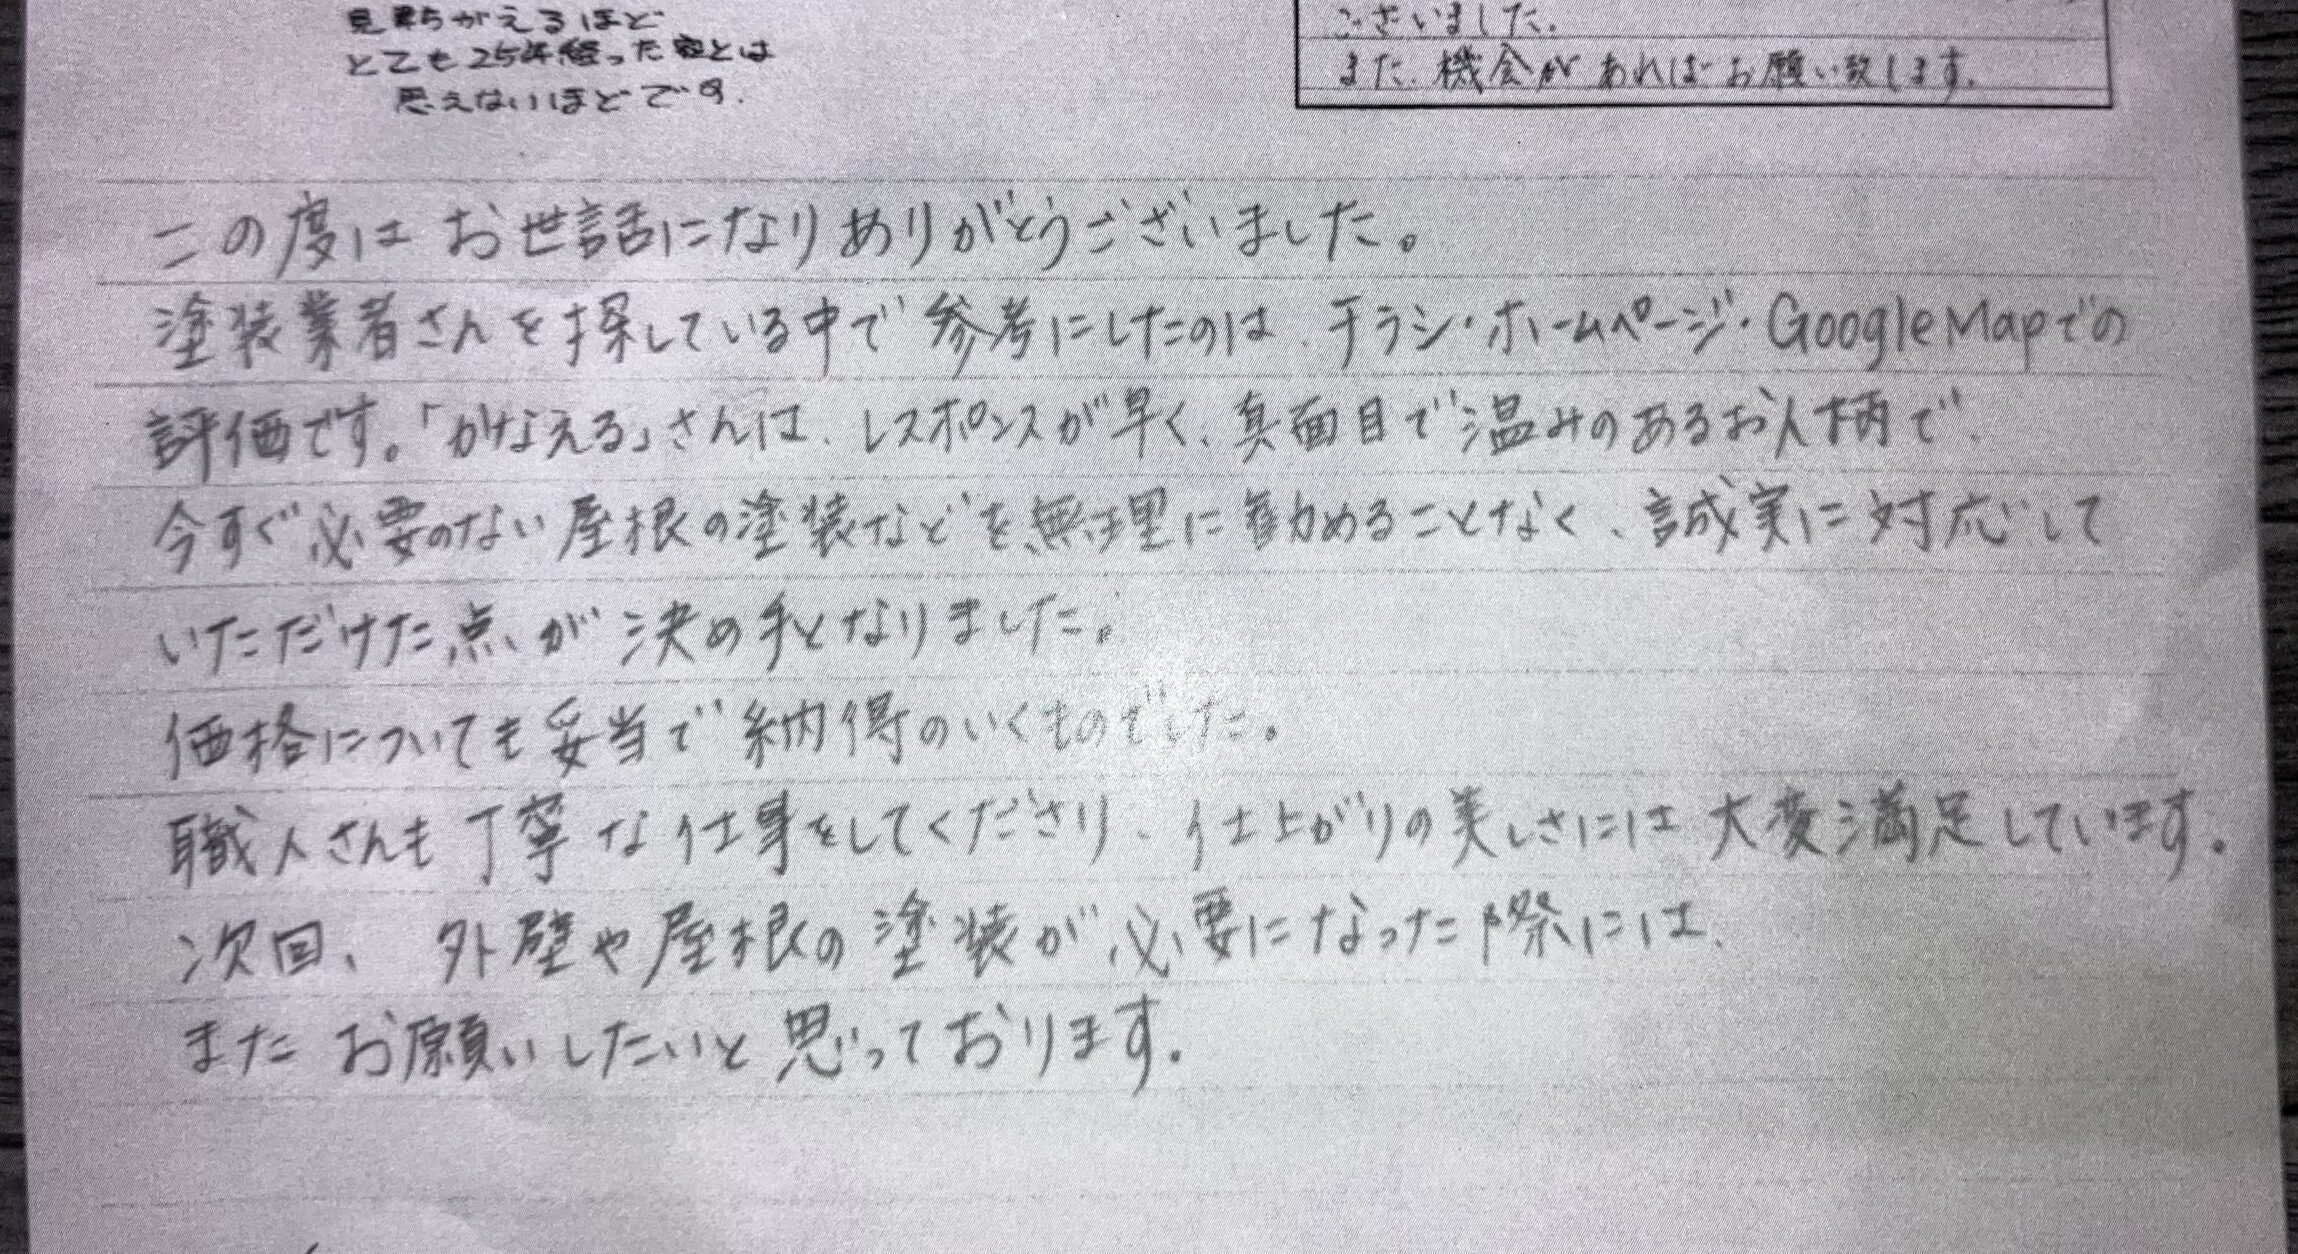 見ちがえるほど
とても25年経った家とは
思えないほどです.
ございました.
また、機会があればお願い致します.
この度はお世話になりありがとうございました。
塗装業者さんを探している中で参考にしたのは、チラシ・ホームページ・GoogleMapでの
評価です。「かなえる」さんは、レスポンスが早く、真面目で温みのあるお人柄で、
今すぐ必要のない屋根の塗装などを無理に勧めることなく、誠実に対応して
いただけた点が決め手となりました。
価格についても妥当で納得のいくものでした。
職人さんも丁寧な仕事をしてくださり、仕上がりの美しさには大変満足しています.
次回、外壁や屋根の塗装が必要になった際には、
またお願いしたいと思っております.